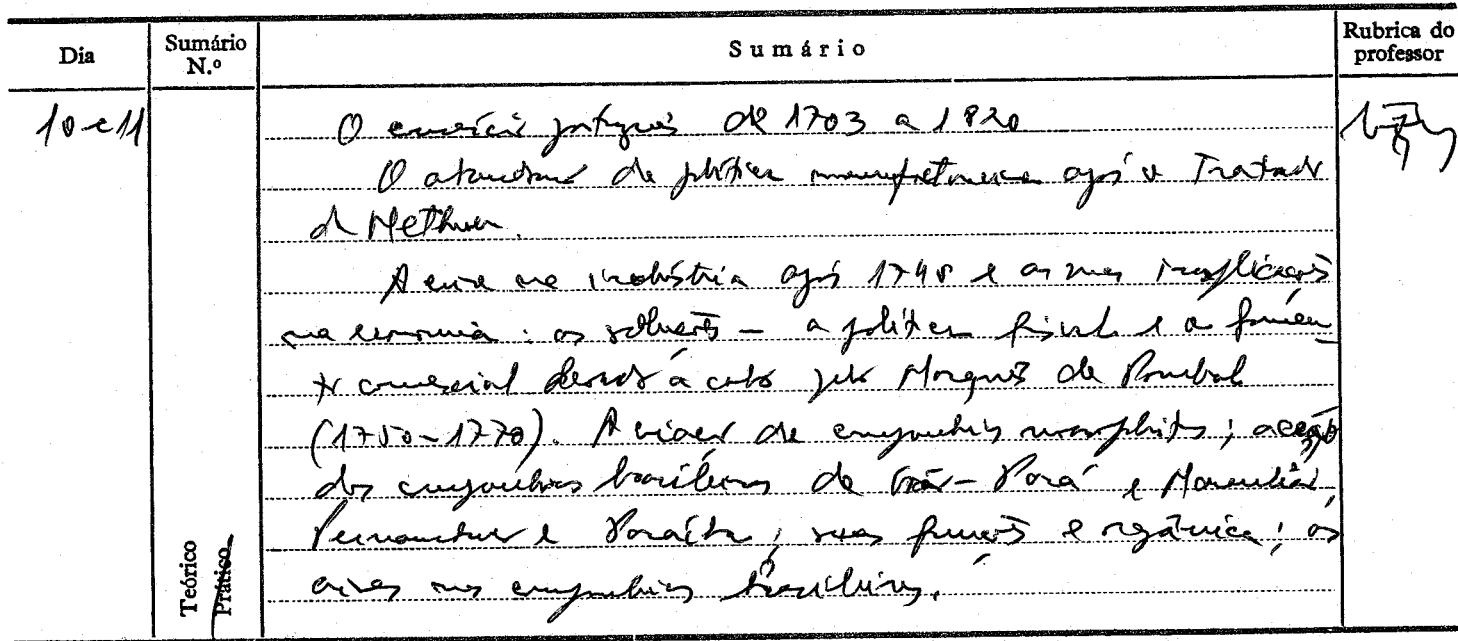 Dia
Sumário N.º
Sumário
Rubrica do professor
10 e 11
O comércio português de 1703 a 1820
O abandono da política manufactureira após o Tratado
de Methuen.
A crise na indústria após 1748 e as suas implicações
na economia: as soluções – a política fiscal e o fomen-
to comercial levado a cabo pelo Marquês de Pombal
(1750-1770). A criação de companhias monopolistas; acção
das companhias brasileiras de Grão-Pará e Maranhão,
Pernambuco e Paraíba; suas funções e orgânica; as
crises nas companhias brasileiras.
Teórico
Prático